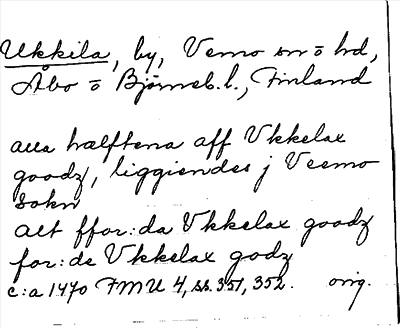 Ukkila, by, Vemo sn o hd,
Åbo o Björneb. l., Finland
alla hælftena aff Vkkelax
goodz, liggiendes j Veemo
sokn
alt ffor:da Vkkelax goodz
for:de Vkkelax godz
c:a 1470 FMU 4, ss. 351, 352. orig.